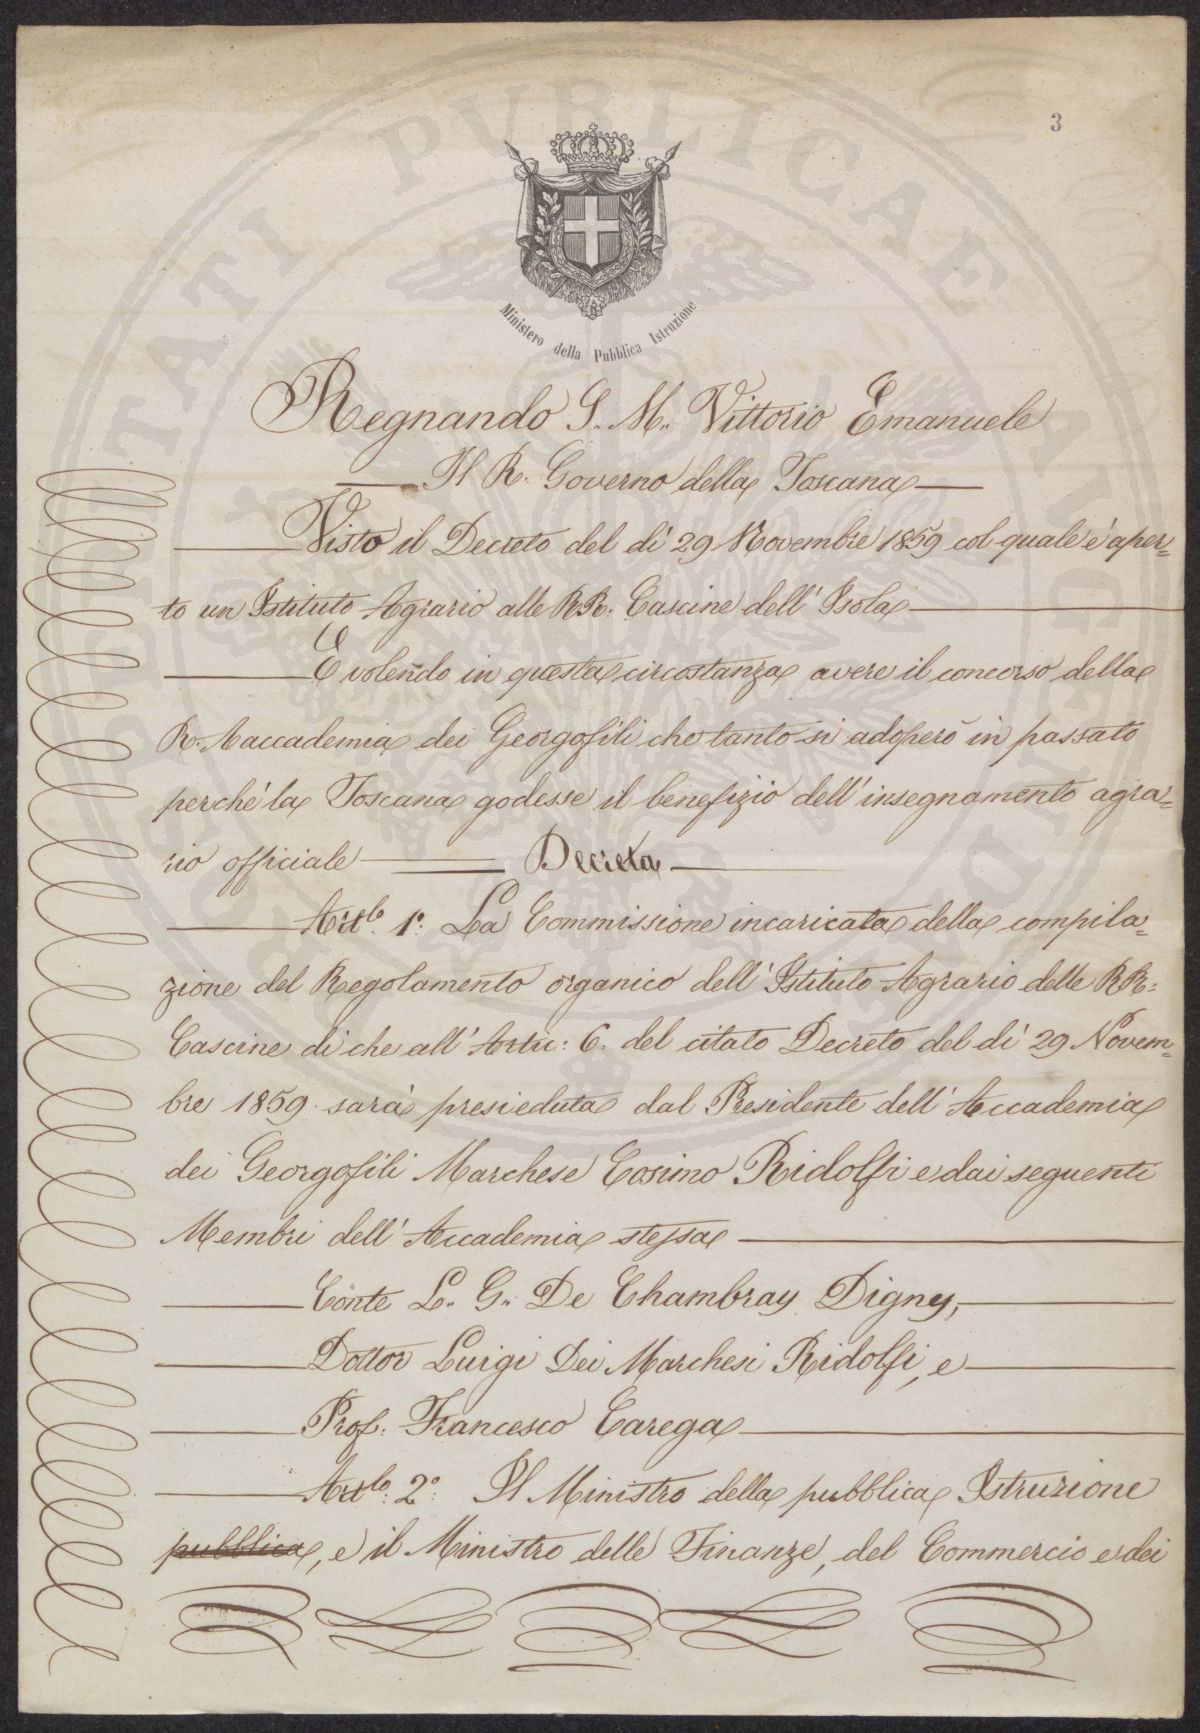 3
Ministero della Pubblica Istruzione
Regnando S. M. Vittorio Emanuele
Il R. Governo della Toscana
Visto il Decreto del dì 29 Novembre 1859 col quale è aper=
to un Istituto Agrario alle RR. Cascine dell' Isola
E volendo in questa circostanza avere il concorso della
R. Accademia dei Georgofili che tanto si adoperò in passato
perché la Toscana godesse il benefizio dell' insegnamento agra=
rio officiale Decreta
Artlo. 1°. La Commissione incaricata della compila=
zione del Regolamento organico dell' Istituto Agrario delle RR:
Cascine di che all' Artic: 6. del citato Decreto del dì 29 Novem=
bre 1859 sarà presieduta dal Presidente dell' Accademia
dei Georgofili Marchese Cosimo Ridolfi e dai seguenti
Membri dell' Accademia stessa
Conte L. G. De Chambray Digny,
Dottor Luigi Dei Marchesi Ridolfi, e
Prof: Francesco Carega
Artlo: 2°. Il Ministro della pubblica Istruzione
pubblica, e il Ministro delle Finanze, del Commercio e dei